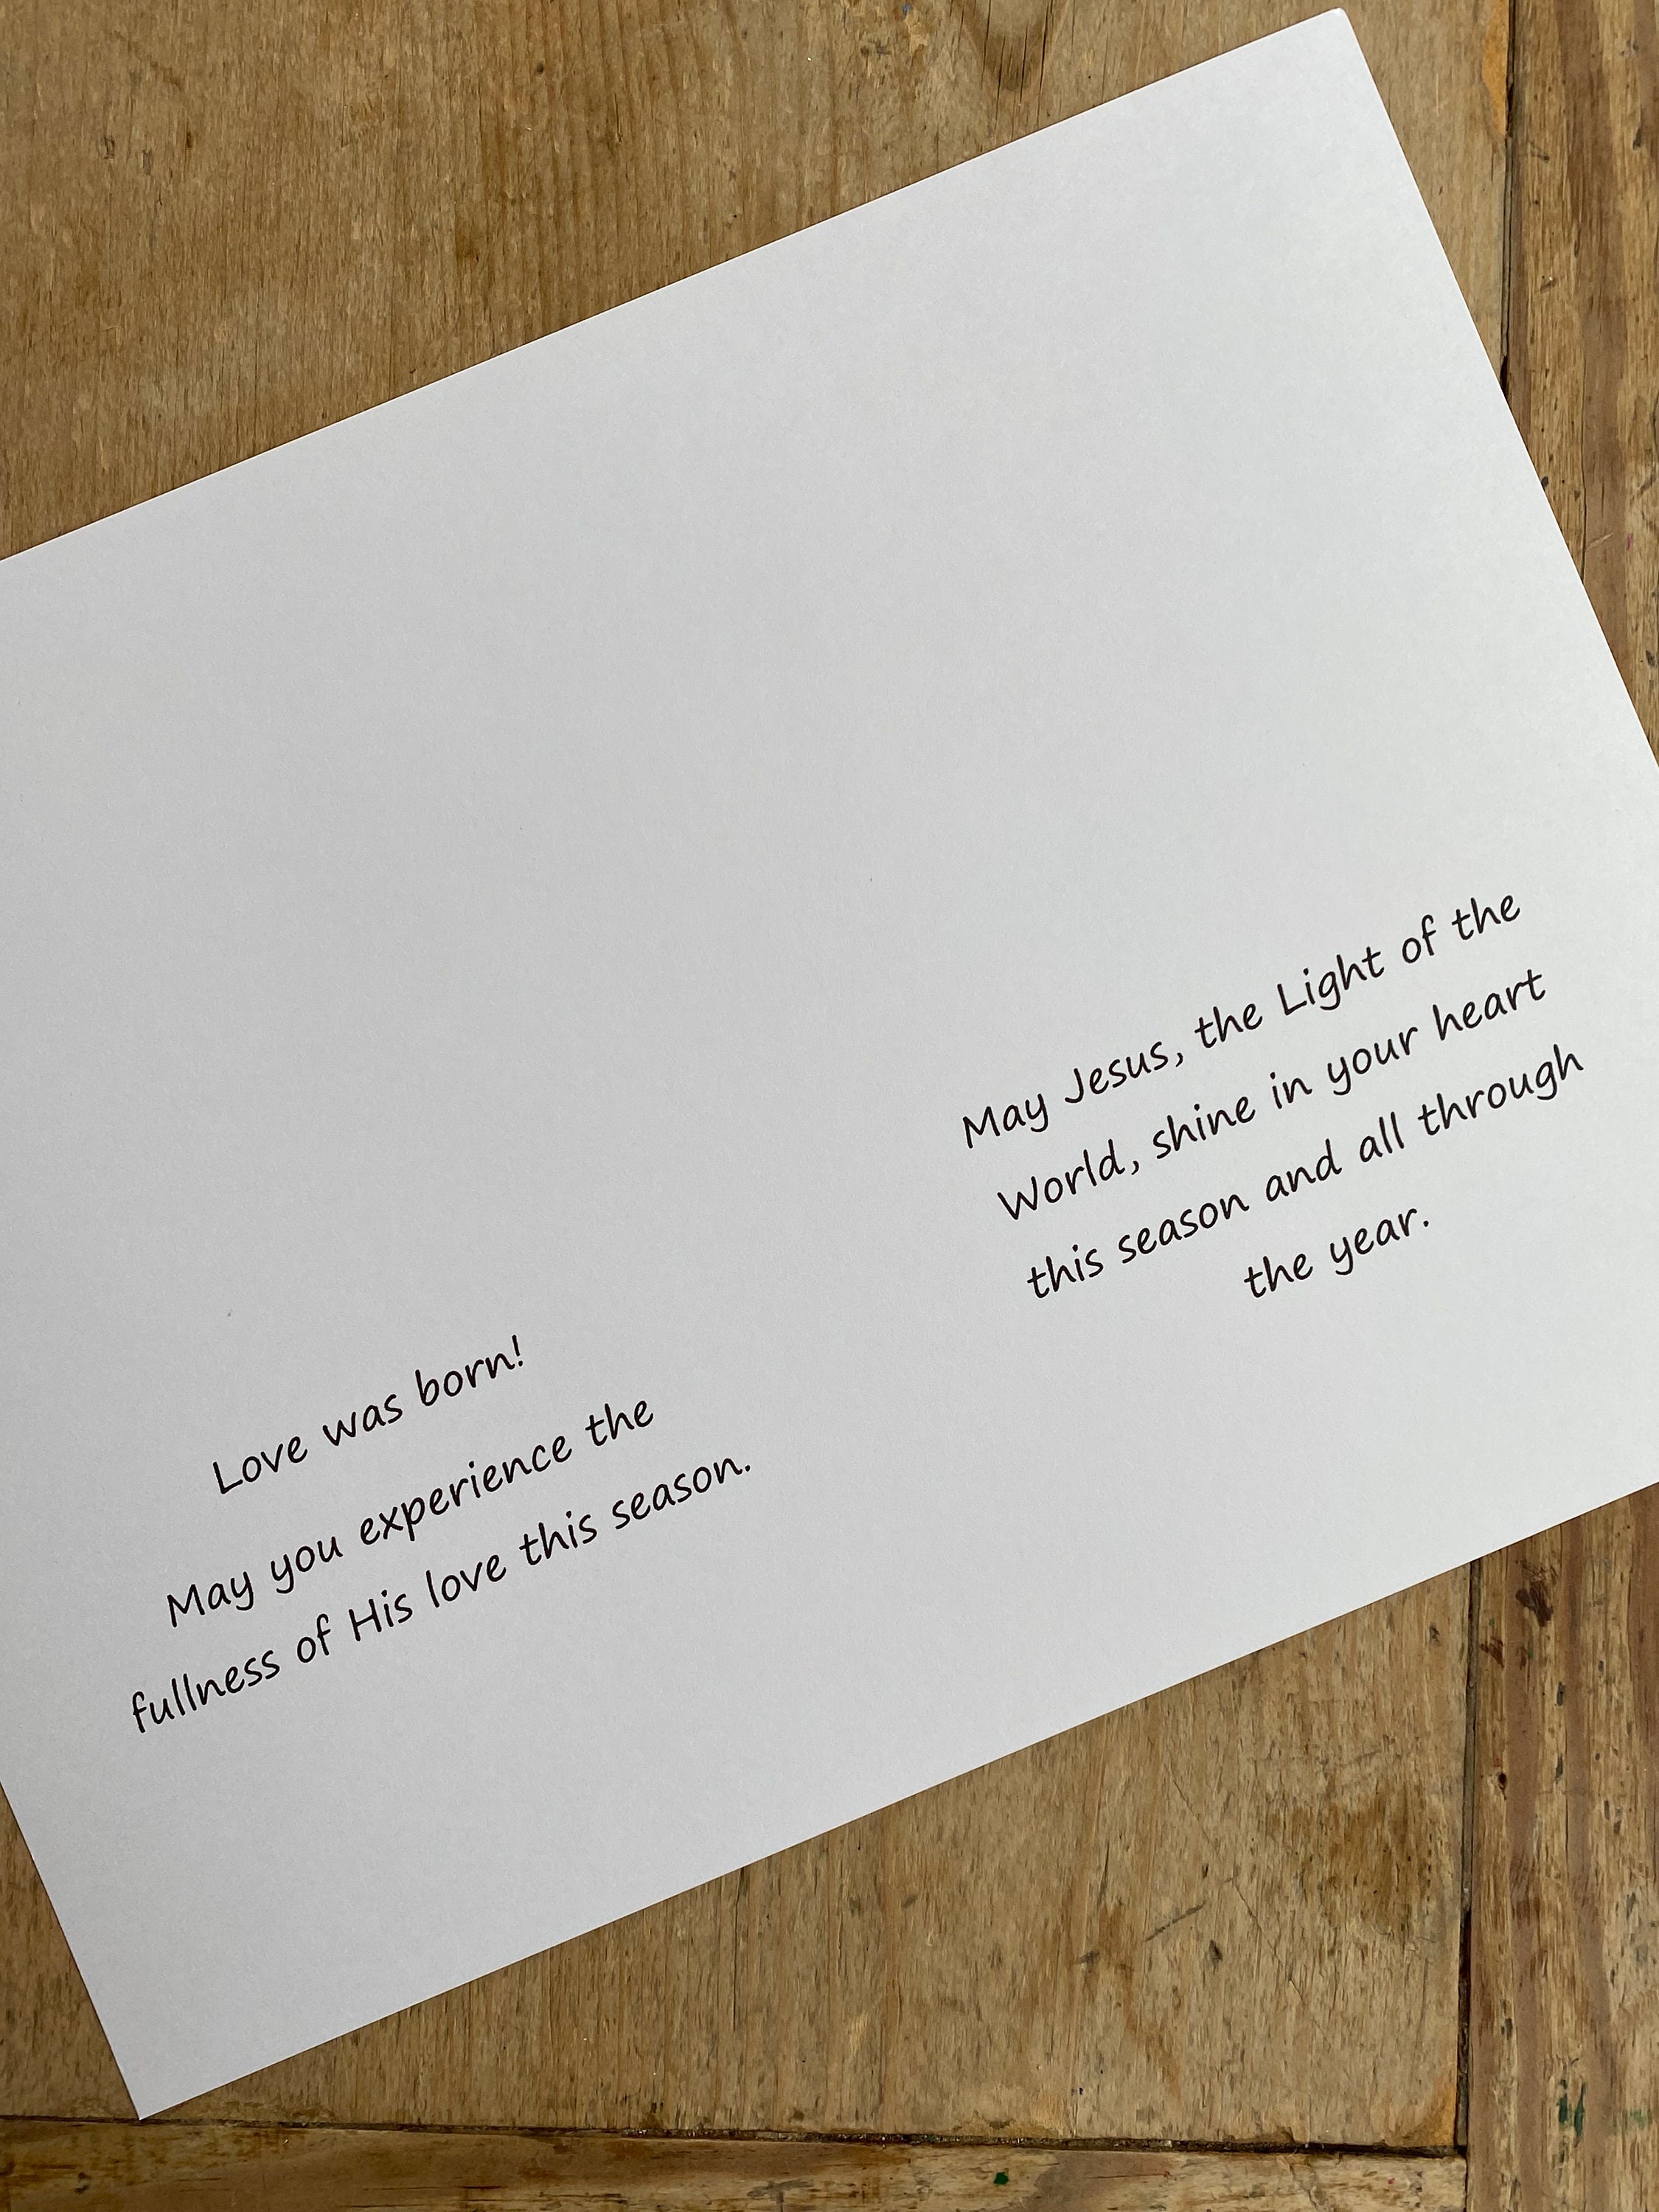 Love was born!
May you experience the
fullness of His love this season.
May Jesus, the Light of the
World, shine in your heart
this season and all through
the year.